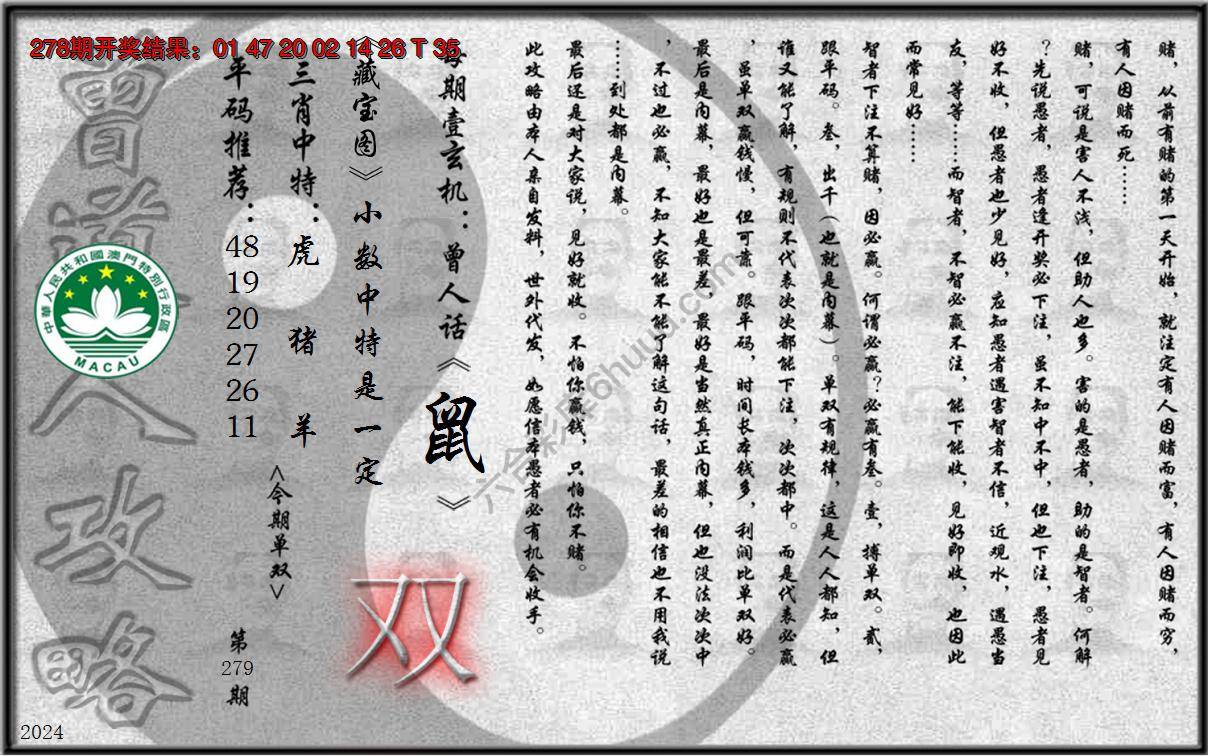 278期开奖结果：01 47 20 02 14 26 T 35
赌，从前有赌的第一天开始，就注定有人因赌而富，有人因赌而穷，
有人因赌而死……
赌，可说是害人不浅，但助人也多。害的是愚者，助的是智者。何解
？先说愚者，愚者逢开奖必下注，虽不知中不中，但也下注，愚者见
好不收，但愚者也少见好，应知愚者遇害智者不信，近观水，遇愚当
友，等等……而智者，不智必赢不注，能下能收，见好即收，也因此
而常见好……
智者下注不算赌，因必赢。何谓必赢？必赢有叁。壹，搏单双。贰，
跟平码。叁，出千（也就是内幕）。单双有规律，这是人人都知，但
谁又能了解，有规则不代表次次都能下注，次次都中。而是代表必赢
，虽单双赢钱慢，但可靠。跟平码，时间长本钱多，利润比单双好。
最后是内幕，最好也是最差，最好是当然真正内幕，但也没法次次中
，不过也必赢，不知大家能不能了解这句话，最差的相信也不用我说
……到处都是内幕。
最后还是对大家说，见好就收。不怕你赢钱，只怕你不赌。
此攻略由本人亲自发料，世外代发，如愿信本愚者必有机会收手。
每期壹玄机：曾人话《鼠》
《藏宝图》小数中特是一定
双
三肖中特：虎 猪 羊
<今期单双>
平码推荐：48 19 20 27 26 11
第279期
曾道人攻略
中華人民共和國澳門特別行政區
MACAU
2024